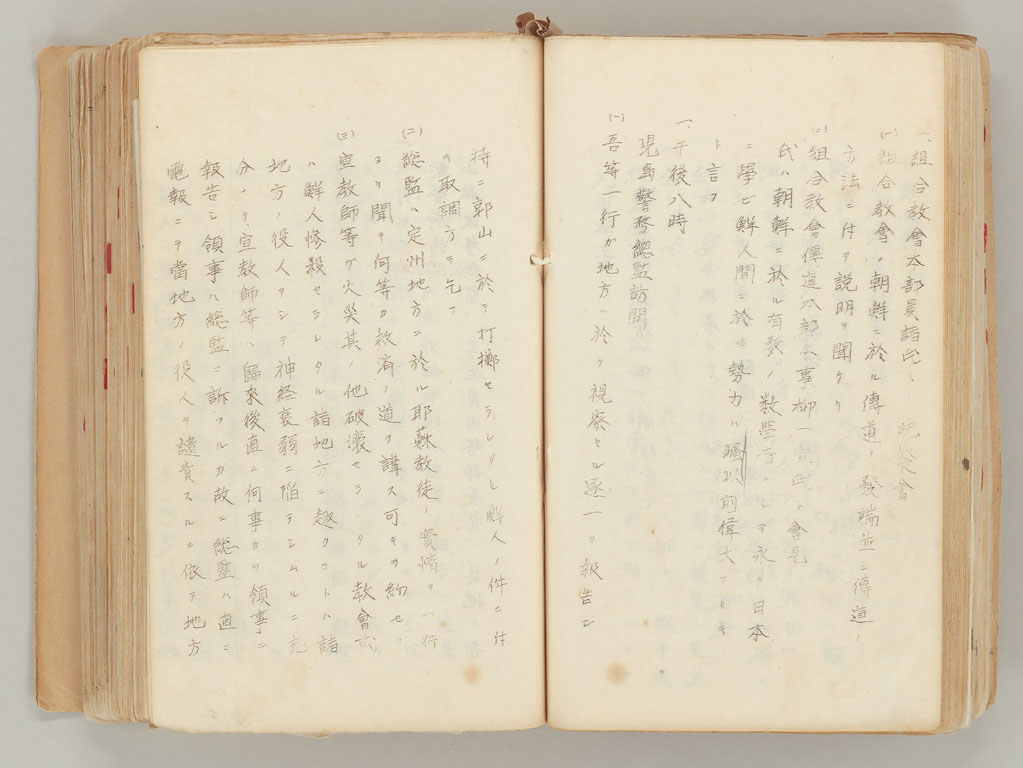 一、組合教會本部員諸氏ト晩餐會
(一)組合教會ノ朝鮮ニ於ル傳道ノ發端並ニ傳道ノ
方法ニ付テ説明ヲ聞ケリ
(二)組合教會傳道本部 事柳一宣氏ト會見
氏ハ朝鮮ニ於ル有数ノ数學 シテ永ク日本
ニ學ビ鮮人間ニ於 勢力ハ騒 以前偉大ナリキ
ト言フ
一、午後八時
児島警務總監訪問
(一)吾等一行ガ地方ニ於テ視察セル逐一ヲ報告シ
特ニ郭山ニ於テ打擲セラレタル鮮人ノ件ニ付
テ取調方ヲ乞フ
(二)總監ハ定州地方ニ於ル耶蘇教徒ノ實情ヲ一行
ヨリ聞キ何等カ救済ノ道ヲ講ス可キヲ約セリ
(三)宣教師等ガ火災其ノ他破壊セラレタル教會或
ハ鮮人惨殺セラレタル諸地方ニ趣クコトハ諸
地方ノ役人ヲシテ神経衰弱ニ陥ラシムルニ充
分ナリ、宣教師等ハ歸来後直ニ何事カヲ領事ニ
報告シ領事ハ總監ニ訴フルカ故ニ總監ハ直ニ
電報ニテ當地方ノ役人ヲ譴責スルニ依テ地方